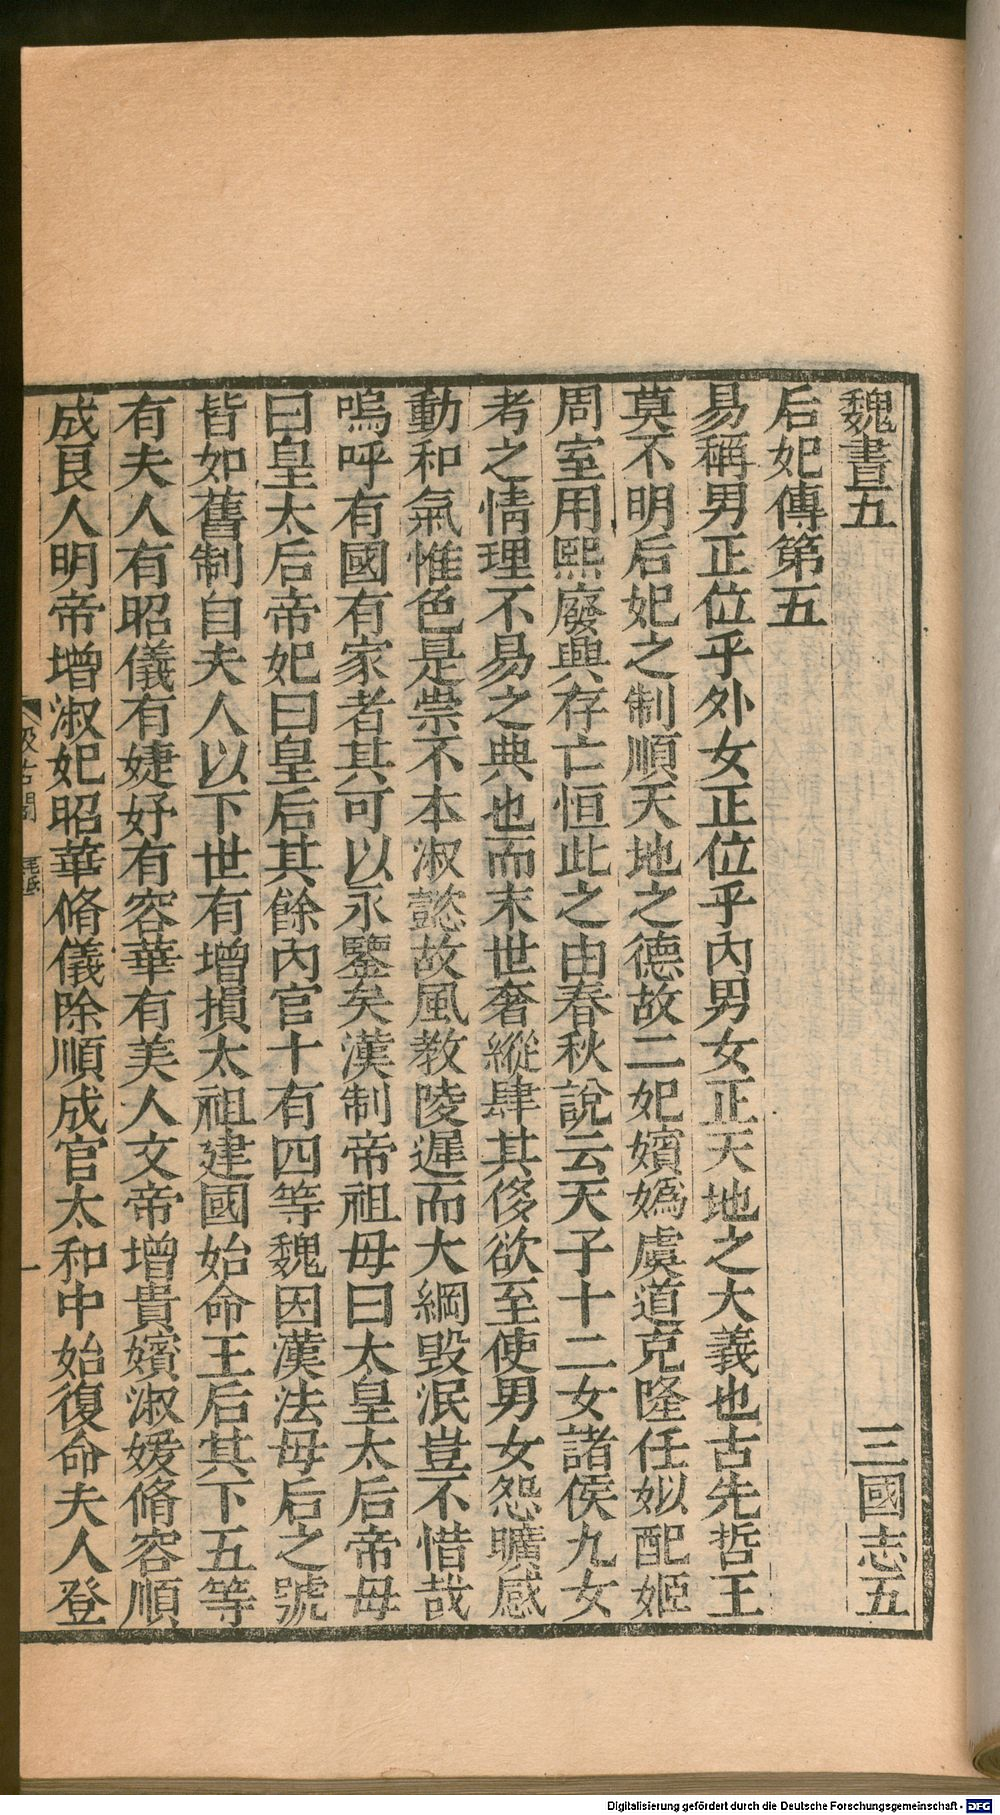 魏書五 三國志五
后妃傳第五
易稱男正位乎外女正位乎內男女正天地之大義也古先哲王
莫不明后妃之制順天地之德故二妃嬪嬀虞道克隆任姒配姬
周室用熙廢興存亡恒此之由春秋說云天子十二女諸侯九女
考之情理不易之典也而末世奢縱肆其侈欲至使男女怨曠感
動和氣惟色是崇不本淑懿故風教陵遲而大綱毀泯豈不惜哉
嗚呼有國有家者其可以永鑒矣漢制帝祖母曰太皇太后帝母
曰皇太后帝妃曰皇后其餘內官十有四等魏因漢法母后之號
皆如舊制自夫人以下世有增損太祖建國始命王后其下五等
有夫人有昭儀有婕妤有容華有美人文帝增貴嬪淑媛脩容順
成良人明帝增淑妃昭華脩儀除順成官太和中始復命夫人登
一
Digitalisierung gefördert durch die Deutsche Forschungsgemeinschaft - DFG